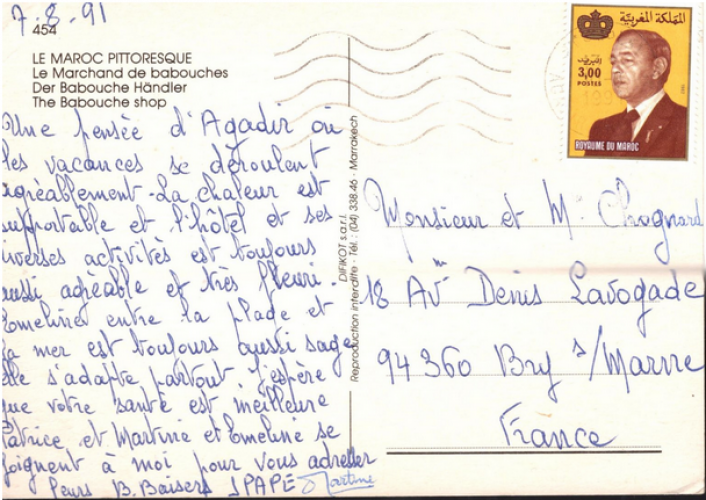 7.8.91
454
LE MAROC PITTORESQUE
Le Marchand de babouches
Der Babouche Händler
The Babouche shop
Une pensée d'Agadir où
les vacances se déroulent
agréablement. La chaleur est
supportable et l'hôtel et ses
iverses activités est toujours
aussi agréable et très fleuri.
Emeline entre la plage et
la mer est toujours aussi sage
elle s'adapte partout j'espère
que votre santé est meilleure
Patrice et Martine et Emeline se
joignent à moi pour vous adresser
leurs B. Baisers JPAPE Martine
DIFIKOT s.a.r.l.
Reproduction interdite - Tél. : (04) 338.46 - Marrakech
المملكة المغربية
3,00
POSTES
ROYAUME DU MAROC
Monsieur et M. Chognard
18 Avm Denis Lavogade
94360 Bry s/Marne
France